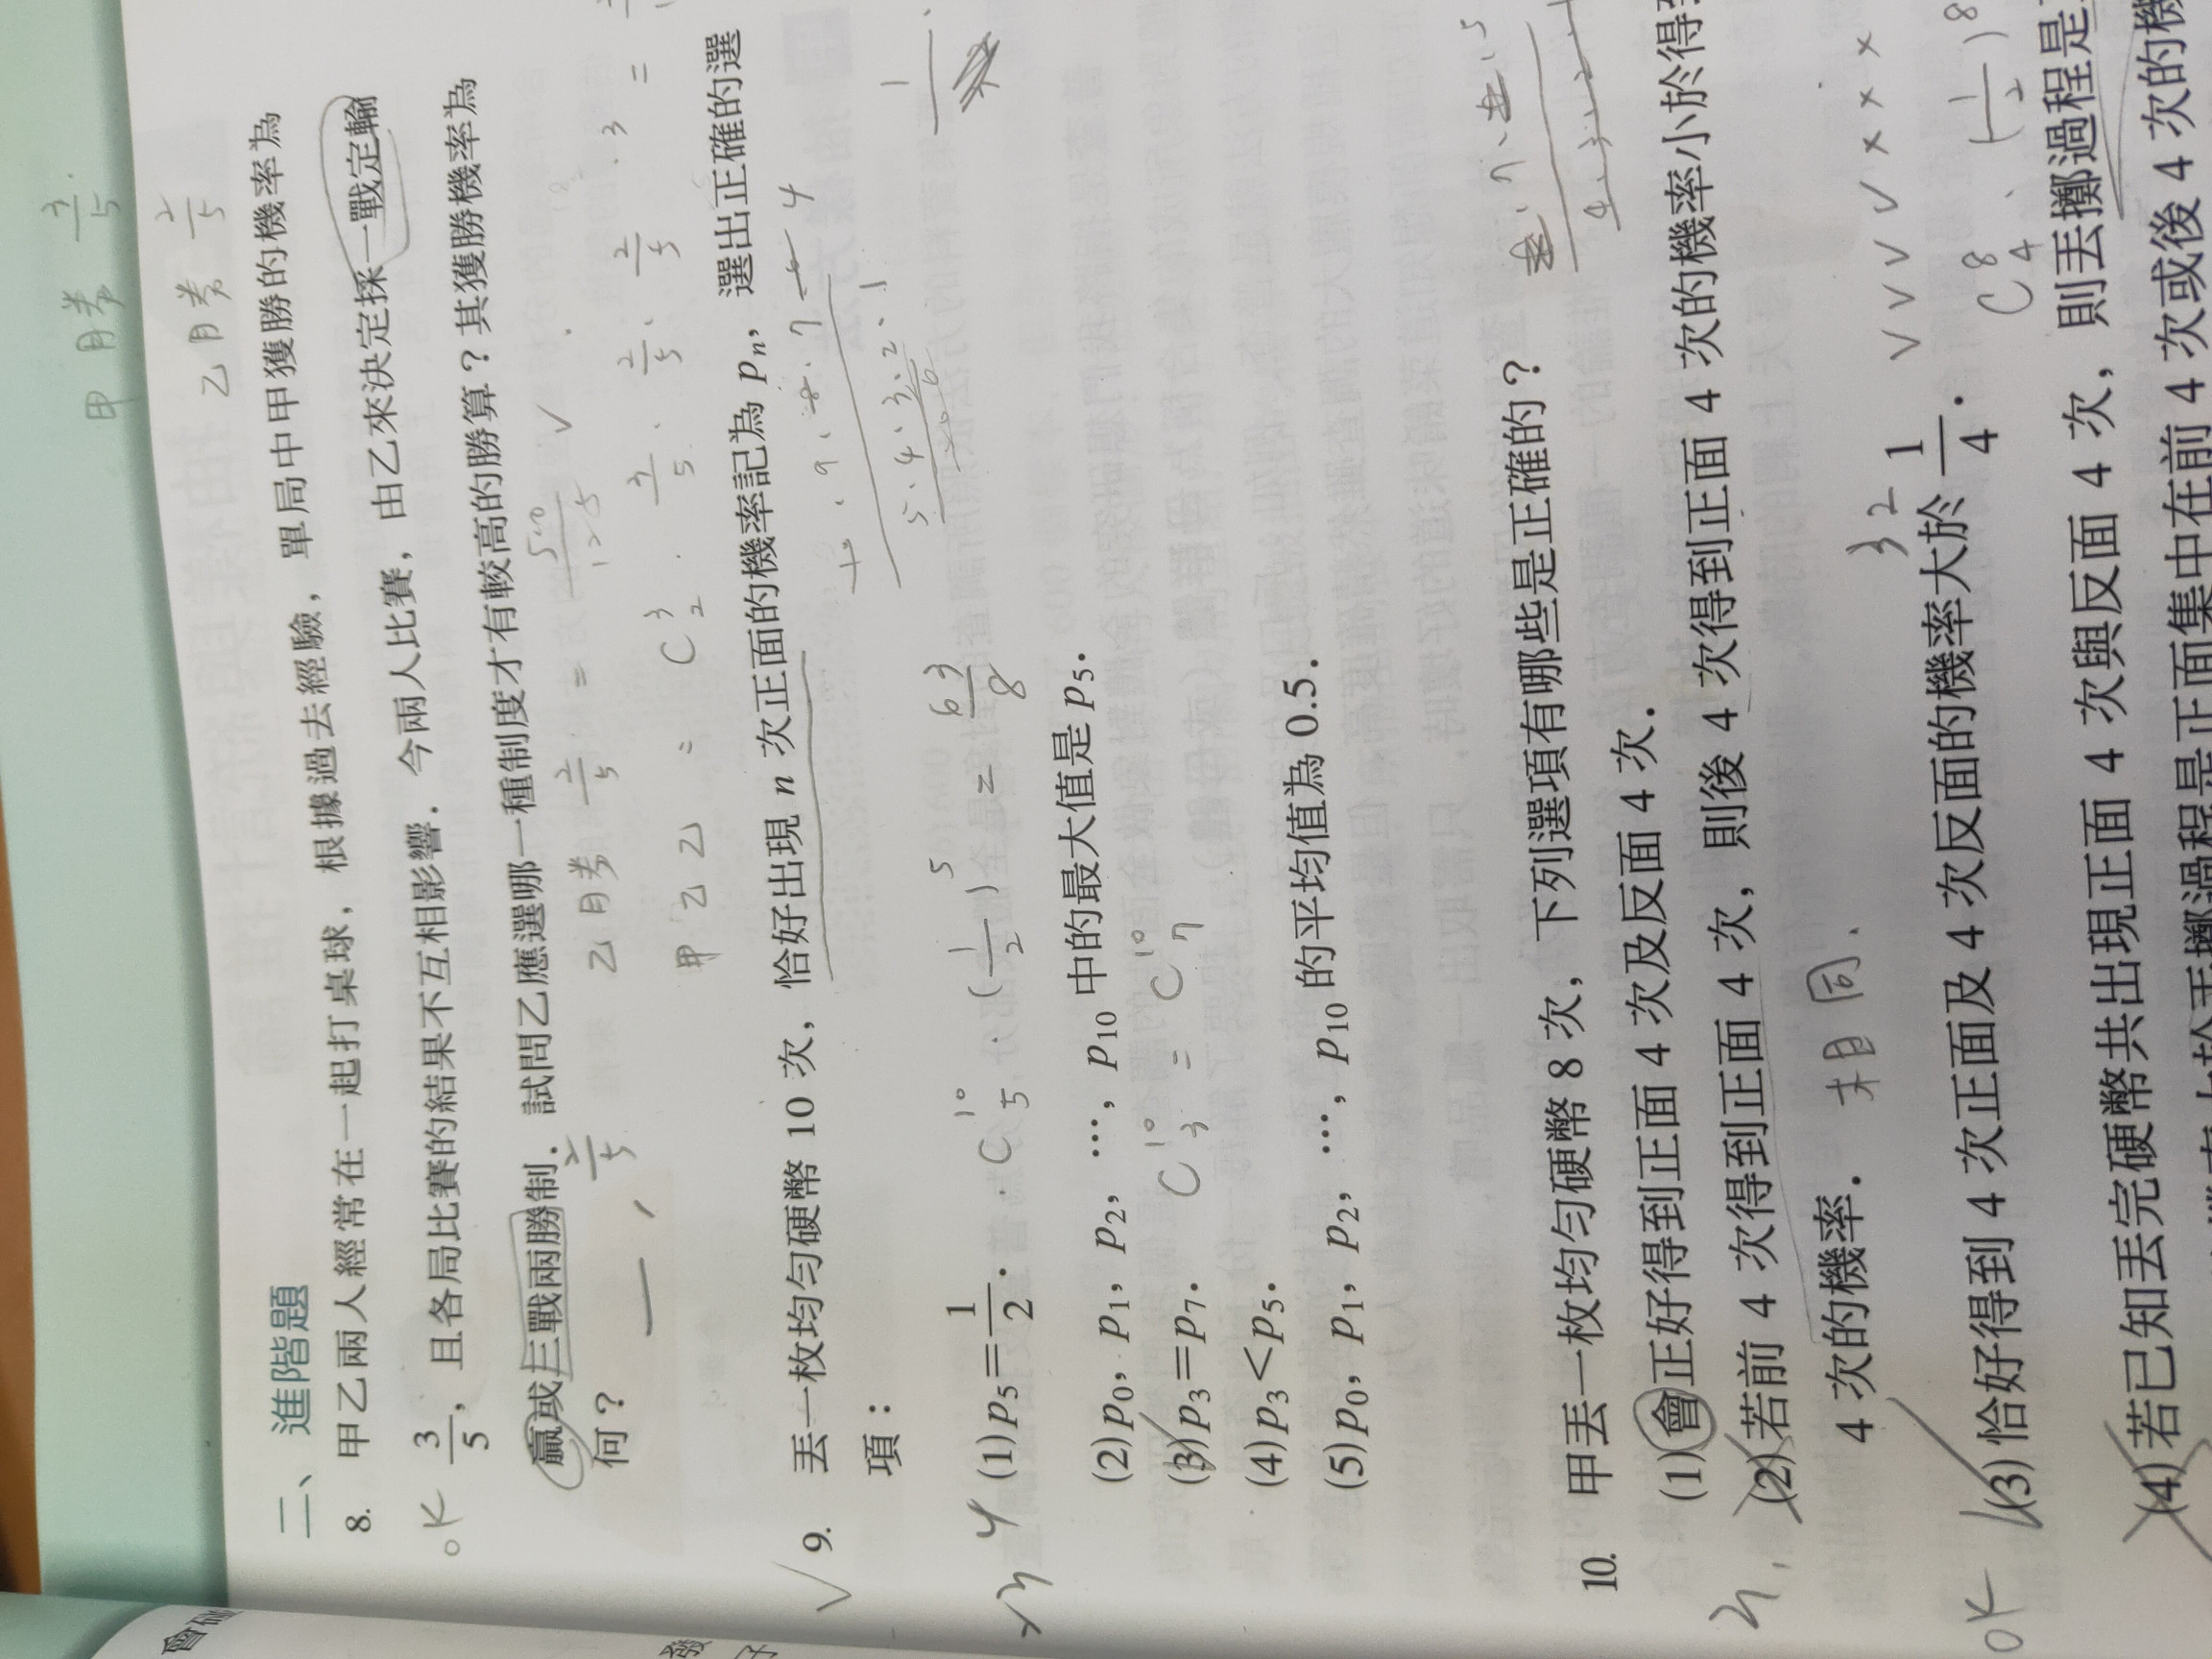 甲勝 3/5
乙勝 2/5
二、進階題
8. 甲乙兩人經常在一起打桌球，根據過去經驗，單局中甲獲勝的機率為
3/5，且各局比賽的結果不互相影響．今兩人比賽，由乙來決定採一戰定輸
贏或三戰兩勝制．試問乙應選哪一種制度才有較高的勝算？其獲勝機率為
何？
OK
乙勝 2/5 =
甲乙乙 = C³₂ · 3/5 · 2/5 · 2/5
9. 丟一枚均勻硬幣 10 次，恰好出現 n 次正面的機率記為 pₙ，選出正確的選
項：
C¹⁰₅ · (1/2)⁵ = 63/8
(1) p₅=1/2．
(2) p₀，p₁，p₂，…，p₁₀ 中的最大值是 p₅．
(3) p₃=p₇．
C¹⁰₃ = C¹⁰₇
(4) p₃＜p₅．
(5) p₀，p₁，p₂，…，p₁₀ 的平均值為 0.5．
10. 甲丟一枚均勻硬幣 8 次，下列選項有哪些是正確的？
(1) 會正好得到正面 4 次及反面 4 次．
(2) 若前 4 次得到正面 4 次，則後 4 次得到正面 4 次的機率小於得到
4 次的機率．
相同．
32
VVVV××××
OK
(3) 恰好得到 4 次正面及 4 次反面的機率大於 1/4．
C⁸₄ · (1/2)⁸
(4) 若已知丟完硬幣共出現正面 4 次與反面 4 次，則丟擲過程是
正面集中在前 4 次或後 4 次的機